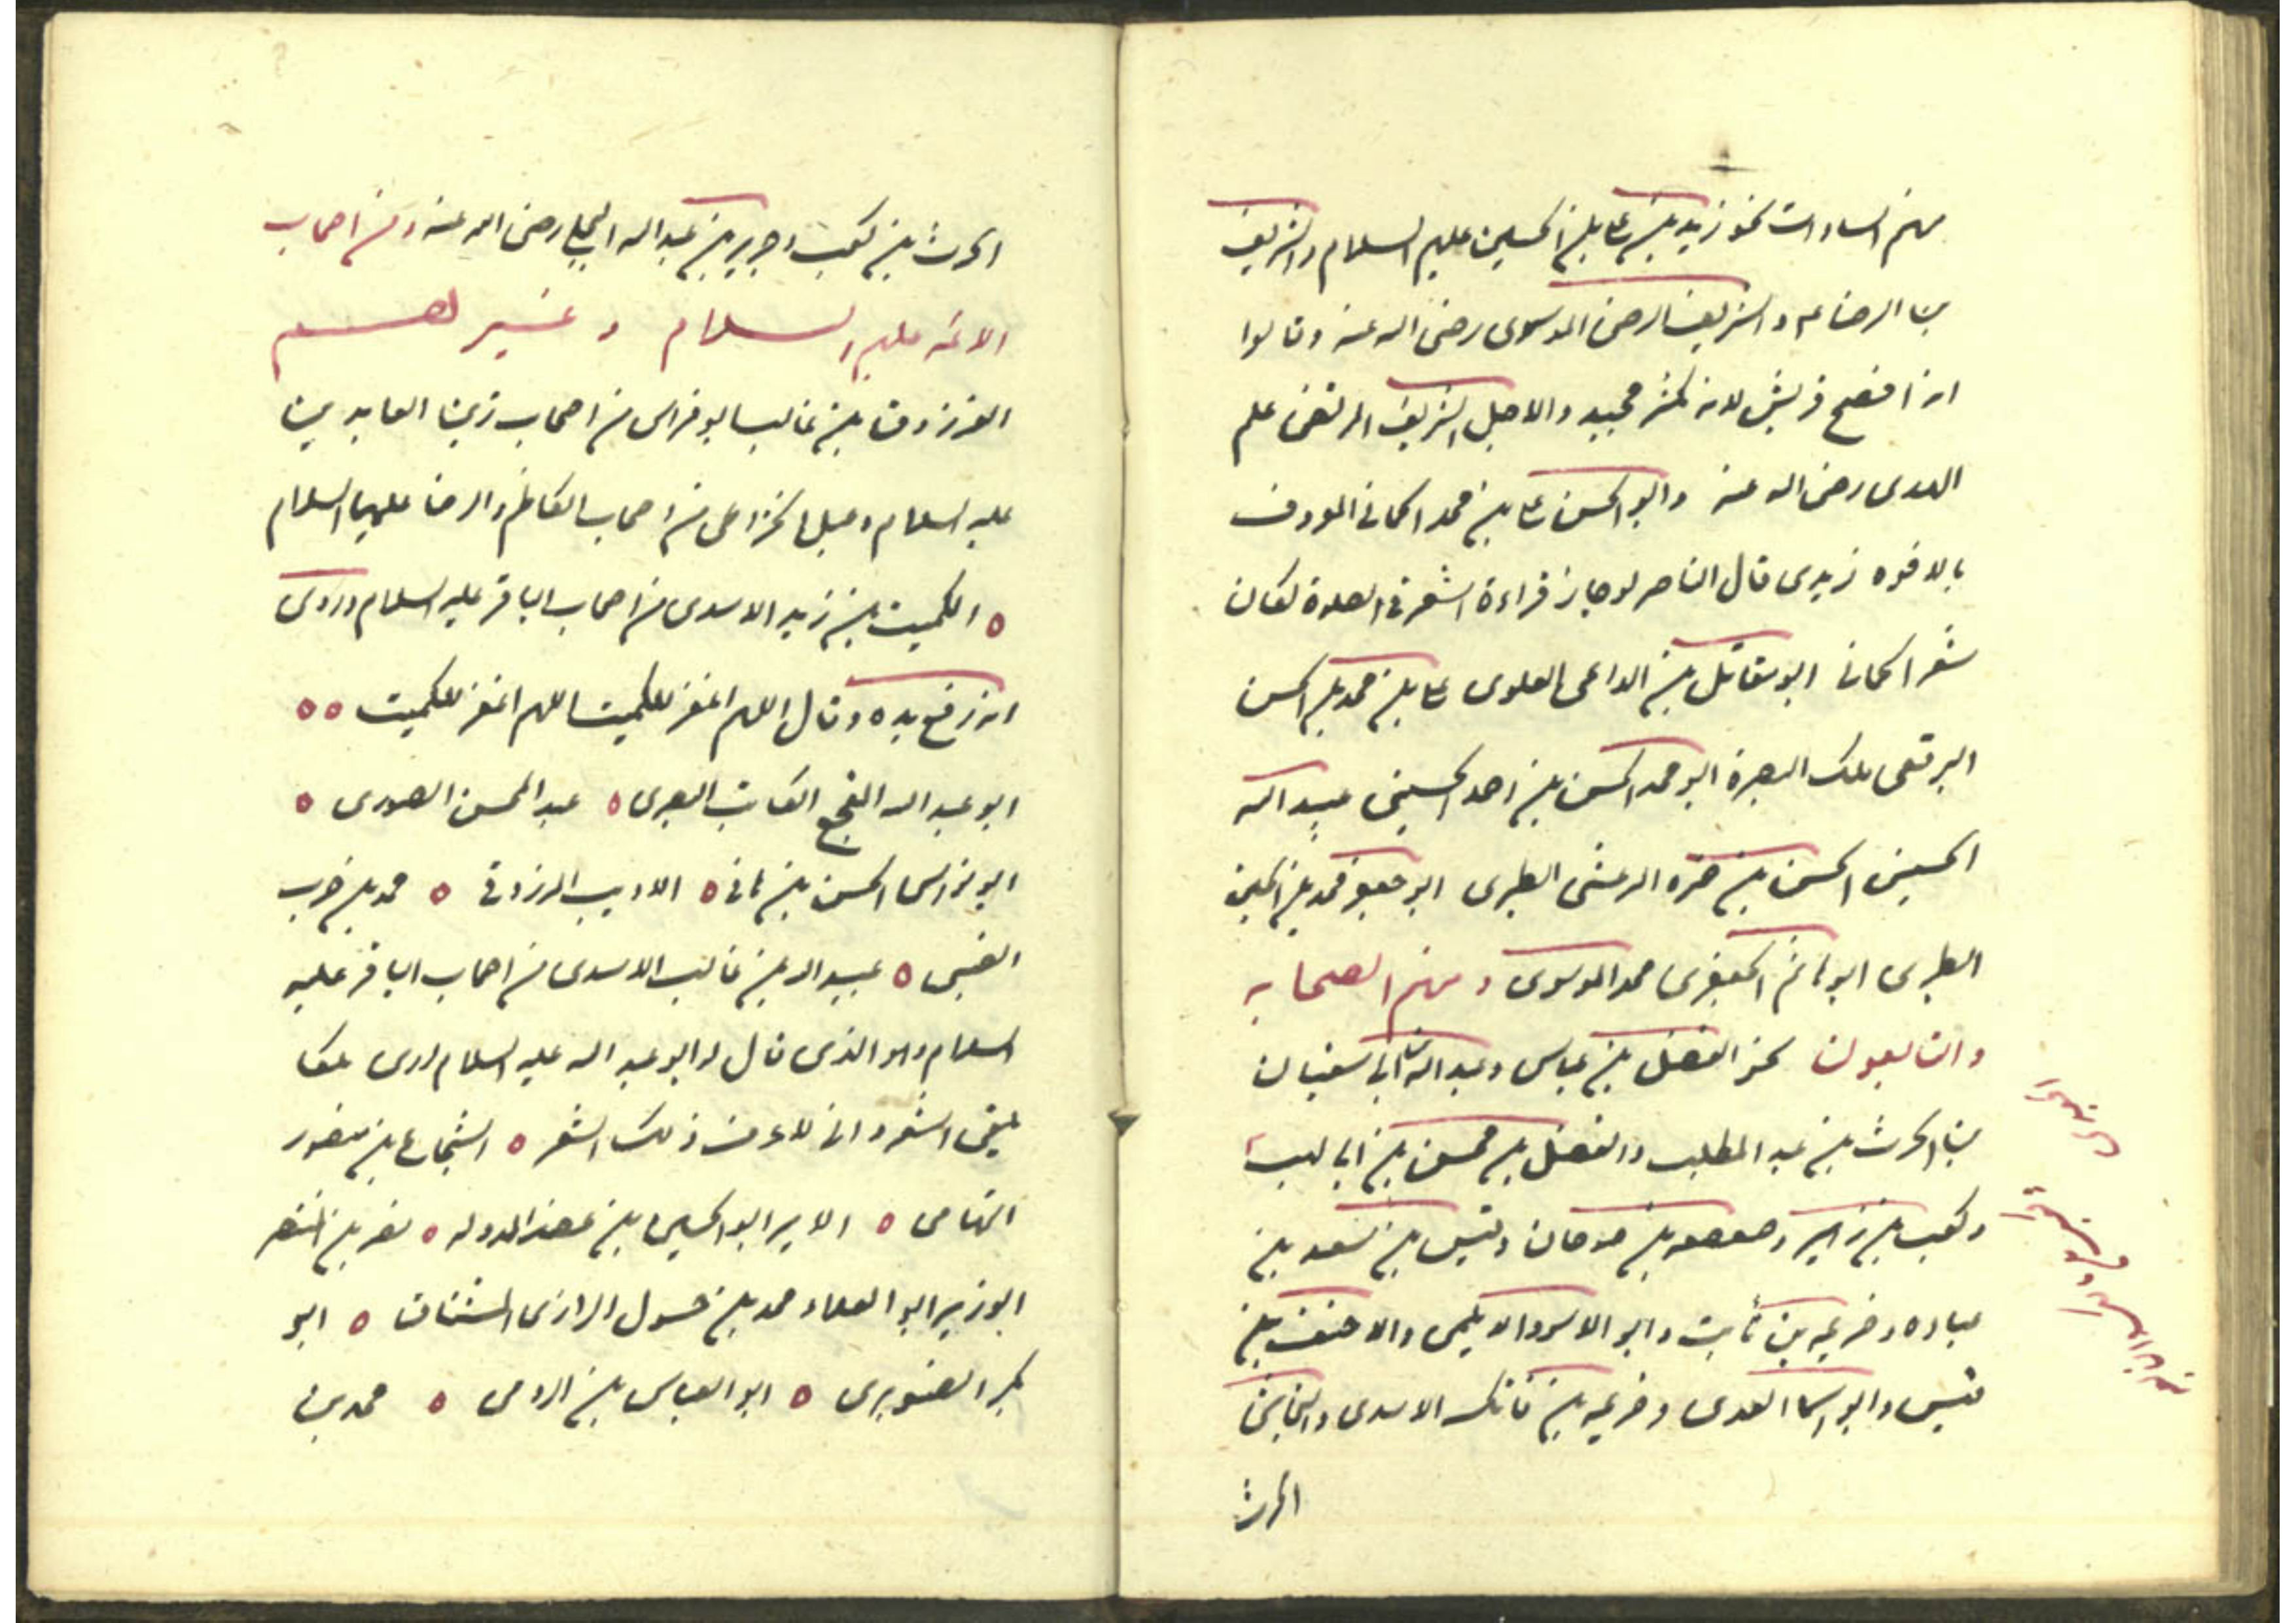 منهم السادات نحو زيد بن على بن الحسين عليهم السلام والشريف
بن الرضا ع م والشريف الرضى الموسوى رضى الله عنه وقالوا
انه افصح قريش لانه مكثر مجيد والاجل الشريف المرتضى علم
الهدى رضى الله عنه وابو الحسن على بن محمد الحمانى المعروف
بالافوه زيدى قال الناصر لو جاز قراءة الشعر فى الصلوة لكان
شعر الحمانى ابو مقاتل بن الداعى العلوى على بن محمد بن الحسن
البرقعى ملك البصرة ابو محمد الحسن بن احمد الحسينى عبيد الله
الحسينى الحسن بن حمزه المرعشى الطبرى ابو جعفر محمد بن الحسين
الطبرى ابو هاشم الجعفرى محمد الموسوى ومنهم الصحابه
والتابعون نحو الفضل بن عباس وعبد الله بن ابى سفيان
بن الحرث بن عبد المطلب والفضل بن محسن بن ابى لهب
وكعب بن زهير وصعصعه بن صوحان وقيس بن سعد بن
عباده وخزيمه بن ثابت وابو الاسود الديلمى والاحنف بن
قيس وابو اسما العدى وخزيمه بن فاتك الاسدى والنجاشى
الحرث
الحرث بن كعب وجرير بن عبد الله البجلى رضى الله عنه ومن اصحاب
الائمه عليهم السلام وغيرهم
الفرزدق بن غالب ابو فراس من اصحاب زين العابدين
عليه السلام دعبل الخزاعى من اصحاب الكاظم والرضا عليهما السلام
ه الكميت بن زيد الاسدى من اصحاب الباقر عليه السلام وروى
انه رفع يده وقال اللهم اغفر للكميت اللهم اغفر للكميت ه ه
ابو عبد الله المفجع الكاتب البصرى ه عبد المحسن الصورى ه
ابو نواس الحسن بن هانى ه الاديب المرزوقى ه محمد بن حرب
الضبى ه عبيد الله بن غالب الاسدى من اصحاب الباقر عليه
السلام وهو الذى قال له ابو عبد الله عليه السلام ارى ملكا
يلقى الشعر وانى لاعرف ذلك الشعر ه الشجاع بن منصور
التهامى ه الامير ابو الحسين بن عضد الدوله ه نصر بن المنتصر
الوزير ابو العلاء محمد بن حسول الرازى المشتاق ه ابو
بكر الصنوبرى ه ابو العباس بن الرومى ه محمد بن